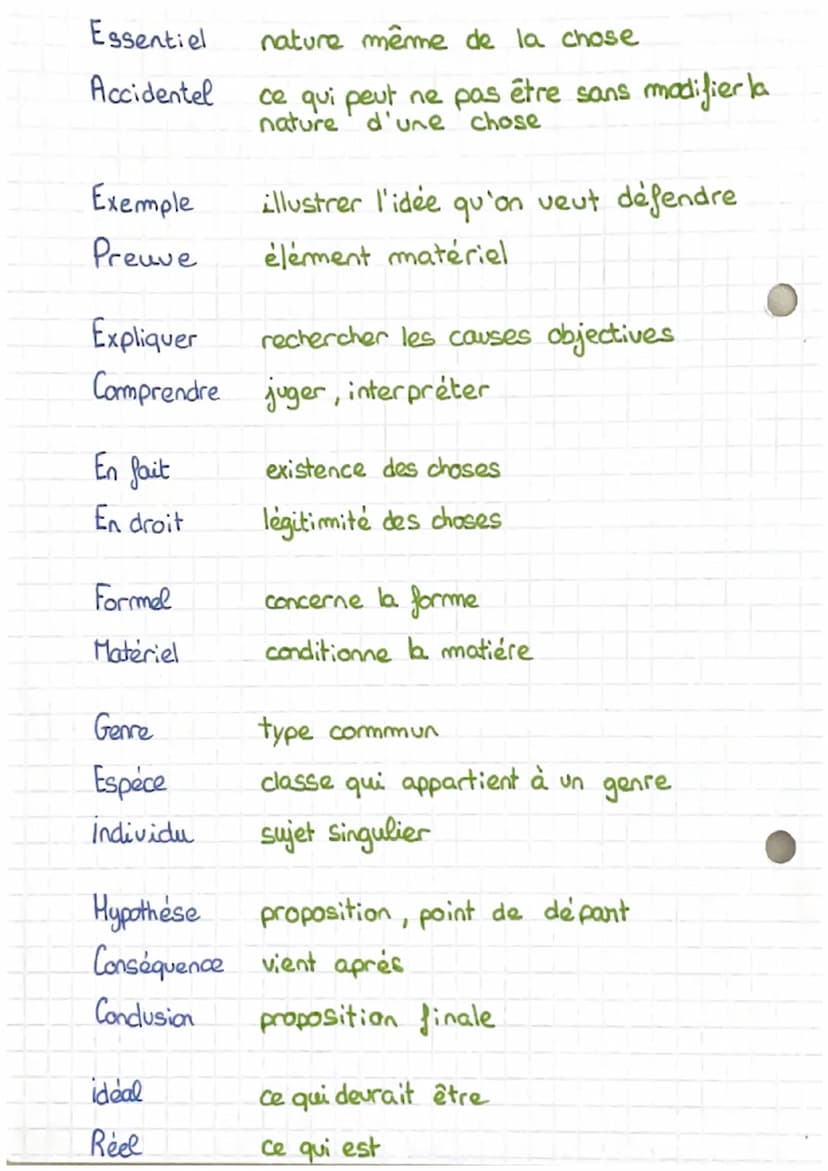 Essentiel nature même de la chose
Accidentel ce qui peut ne pas être sans modifier la
nature d'une chose
Exemple illustrer l'idée qu'on veut défendre
Preuve élément matériel
Expliquer rechercher les causes objectives
Comprendre juger, interpréter
En fait existence des choses
En droit légitimité des choses
Formel concerne la forme
Matériel conditionne la matière
Genre type commun
Espèce classe qui appartient à un genre
individu sujet singulier
Hypothèse proposition, point de départ
Conséquence vient après
Conclusion proposition finale
idéal ce qui devrait être
Réel ce qui est